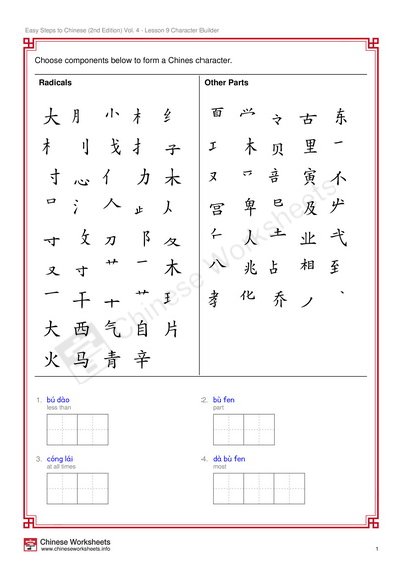 Easy Steps to Chinese (2nd Edition) Vol. 4 - Lesson 9 Character Builder
Choose components below to form a Chines character.
Radicals
大 月 小 木 纟
木 刂 戈 扌 子
寸 心 亻 力 木
口 氵 人 止 人
寸 攵 刀 阝 夂
又 寸 艹 一 木
一 干 十 艹 王
大 西 气 自 片
火 马 青 辛
Other Parts
面 龸 マ 古 东
工 木 贝 里 一
又 爫 音 寅 不
宫 卑 巳 及 少
𠂉 人 土 业 弋
八 兆 占 相 至
孝 化 乔 丿 丶
1. bú dào
less than
2. bù fen
part
3. cóng lái
at all times
4. dà bù fen
most
Chinese Worksheets
Chinese Worksheets
www.chineseworksheets.info
1